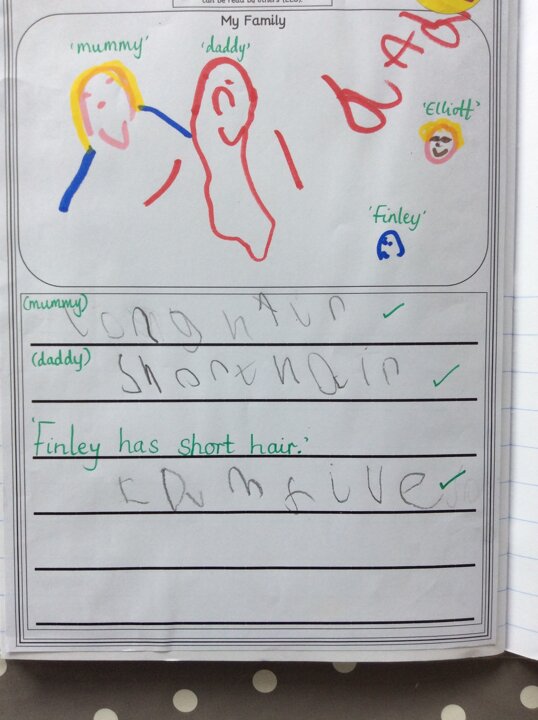 can be read by others (ELG).
My Family
'mummy' 'daddy'
DAD
'Elliott'
'Finley'
(mummy) long hair
(daddy) short hair
'Finley has short hair.'